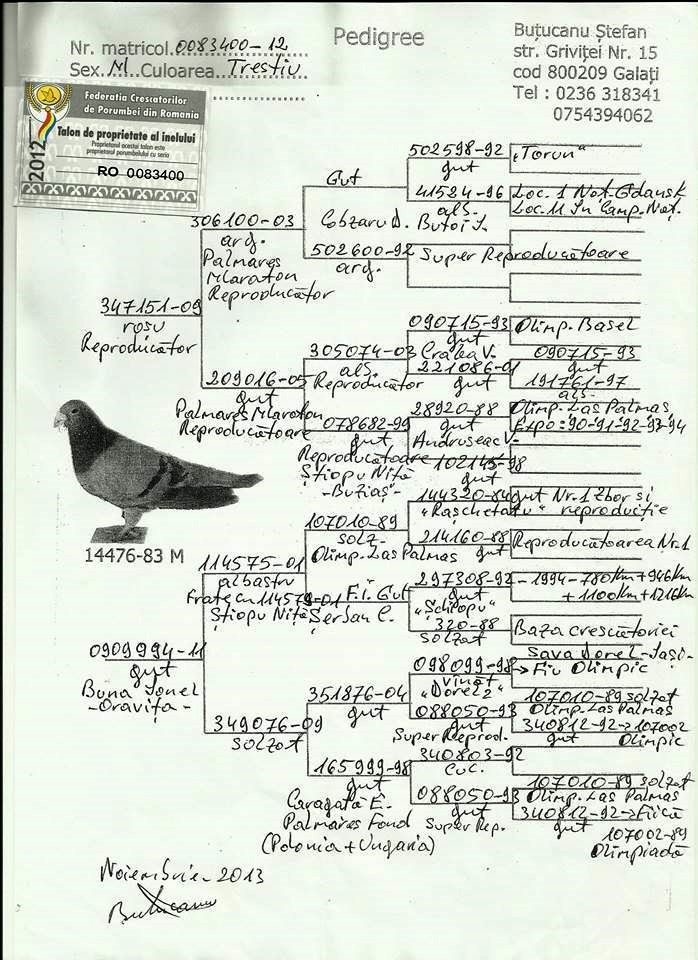 Pedigree
Nr. matricol 0083400-12
Sex M Culoarea Trestiu
Buțucanu Ștefan
str. Griviței Nr. 15
cod 800209 Galați
Tel : 0236 318341
0754394062
Federatia Crescatorilor
de Porumbei din Romania
Talon de proprietate al inelului
Proprietarul acestui talon este
proprietarul porumbelului cu seria
2012
RO 0083400
502598-92 „Torun"
gut
Gut
41524-96 Loc. 1 Naț. Gdansk
alș. Loc. 11 în Camp. Naț.
306100-03 Cobzaru d. Butoi I.
arg.
502600-92 Super Reproducătoare
arg.
Palmares
Maraton
Reproducător
347151-09
roșu
Reproducător
090715-93 Olimp. Basel
gut
305074-03 Cralea V.
alș.
090715-93
gut
221086-01
gut
191761-97
alș.
Reproducător
209016-05
gut
Palmares Maraton
Reproducătoare
28920-88 Olimp. Las Palmas
gut Expo: 90-91-92-93-94
078682-99 Andruseac V-
gut
102145-98
Reproducătoare
Știopu Niță
-Buziaș-
14476-83 M
144320-84 gut Nr. 1 zbor si
„Rașchetatu" reproducție
107010-89
solz.
Olimp. Las Palmas
214160-88 Reproducătoarea Nr. 1
gut
114575-01
albastru
Frate cu 114579-01
Știopu Niță
F.I. Gut
Șerban C.
297308-92 -1994-780Km+946Km
gut +1100Km+1216Km
„Șchiopu"
320-88 Baza crescătoriei
solzat
0909994-11
gut
Buna Ionel
-Oravița-
098099-98 Sava Dorel-Iași-
vînăt → Fiu Olimpic
„Dorel 2"
351876-04
gut
107010-89 solzat
Olimp. Las Palmas
088050-93
gut
Super Reprod.
340812-92→107002
gut Olimpic
349076-09
solzat
340803-92
Cuc.
165999-98
gut
Caragață E.
Palmares Fond
(Polonia + Ungaria)
107010-89 solzat
Olimp. Las Palmas
088050-93
gut
Super Rep.
340812-92→Fiică
gut 107002-89
Olimpiadă
Noiembrie-2013
Butucanu